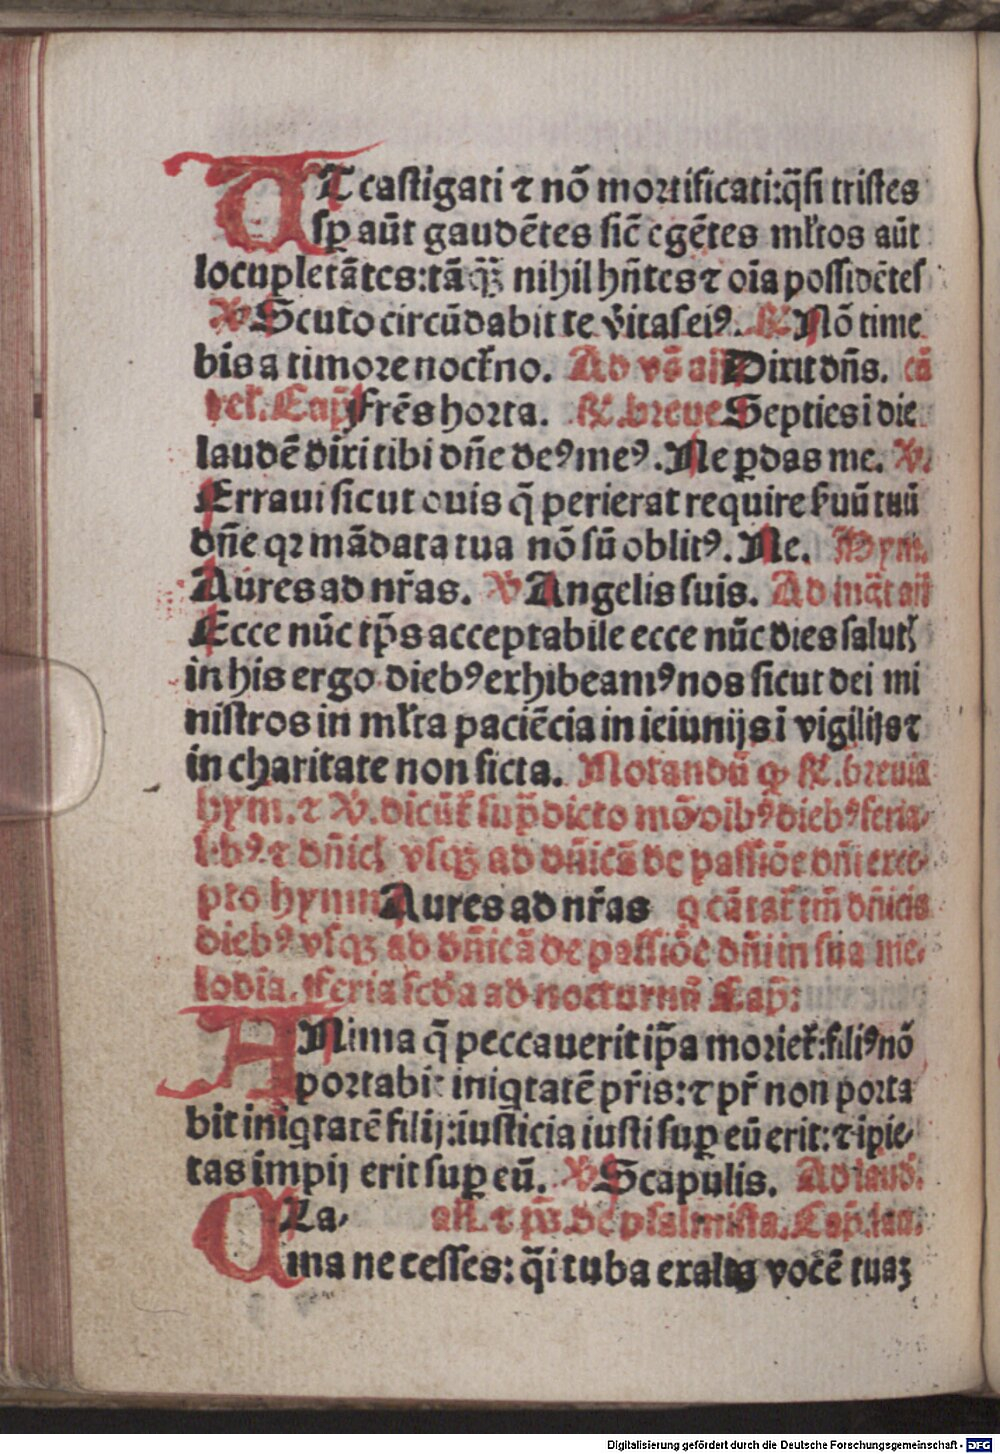 UT castigati ⁊ nō mortificati:q̄si tristes
sꝑ aūt gaudētes sic̄ egētes ml̄tos aūt
locupletātes:tāqꝫ nihil hn̄tes ⁊ oīa possidētes
℣ Scuto circūdabit te v̄itas eiꝰ. ℟ Nō time
bis a timore noct̄no. Ad vs̄ an̄ Dixit dn̄s. cū
rel̄. Cap̄ Frēs horta. ℟. breue Septies ī die
laudē dixi tibi dn̄e deꝰ meꝰ. Ne ꝑdas me. ℣.
Erraui sicut ouis q̄ perierat require suū tuū
dn̄e qꝛ mādata tua nō sū oblitꝰ. Ne. Hym.
Aures ad nr̄as. ℣ Angelis suis. Ad mḡt an̄
Ecce nūc tp̄s acceptabile ecce nūc dies salutꝭ
in his ergo diebꝰ exhibeamꝰ nos sicut dei mi
nistros in ml̄ta paciēcia in ieiunijs ī vigilijs ⁊
in charitate non ficta. Notandū ꝙ ℟. breuia
hym. ⁊ ℣. dicūt̄ sup̄dicto mō oībꝰ diebꝰ feria-
libꝰ. ⁊ dn̄icꝭ vsqꝫ ad dn̄icā de passiōe dn̄i exce-
pto hymn̄ Aures ad nr̄as q cātat̄ tm̄ dn̄icis
diebꝰ vsqꝫ ad dn̄icā de passiōe dn̄i in sua me-
lodia. Feria scd̄a ad nocturnū Cap̄:
ANima q̄ peccauerit ip̄a moriet̄:filiꝰ nō
portabit iniqtatē pr̄is:⁊ pr̄ non porta
bit iniqtatē filij:iusticia iusti suꝑ eū erit:⁊ īpie-
tas impij erit suꝑ eū. ℣ Scapulis. Ad laud̄.
CLa- an̄. ⁊ ps̄. de psalmista. Cap̄. lau.
ma ne cesses: q̄i tuba exalta vocē tuaꝫ
Digitalisierung gefördert durch die Deutsche Forschungsgemeinschaft - DFG